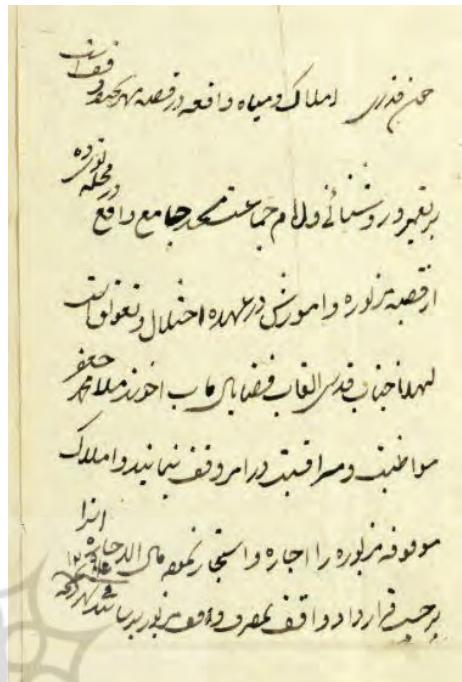 چون قدری املاک و میاه واقعه در قصبه وقف است
بر تعمیر و روشنائی و امام جماعت مسجد جامع واقع در محله نوده
از قصبه مزبوره و امورش در عهده اختلال و تعویق است
لهذا جناب قدسی القاب فضایل مآب آخوند ملا محمد جعفر
مواظبت و مراقبت در امر وقف نمایند و املاک
موقوفه مزبوره را اجاره و استیجار نموده مال الاجاره آنرا
بر حسب قرارداد واقف بمصرف وقف مزبور برسانند